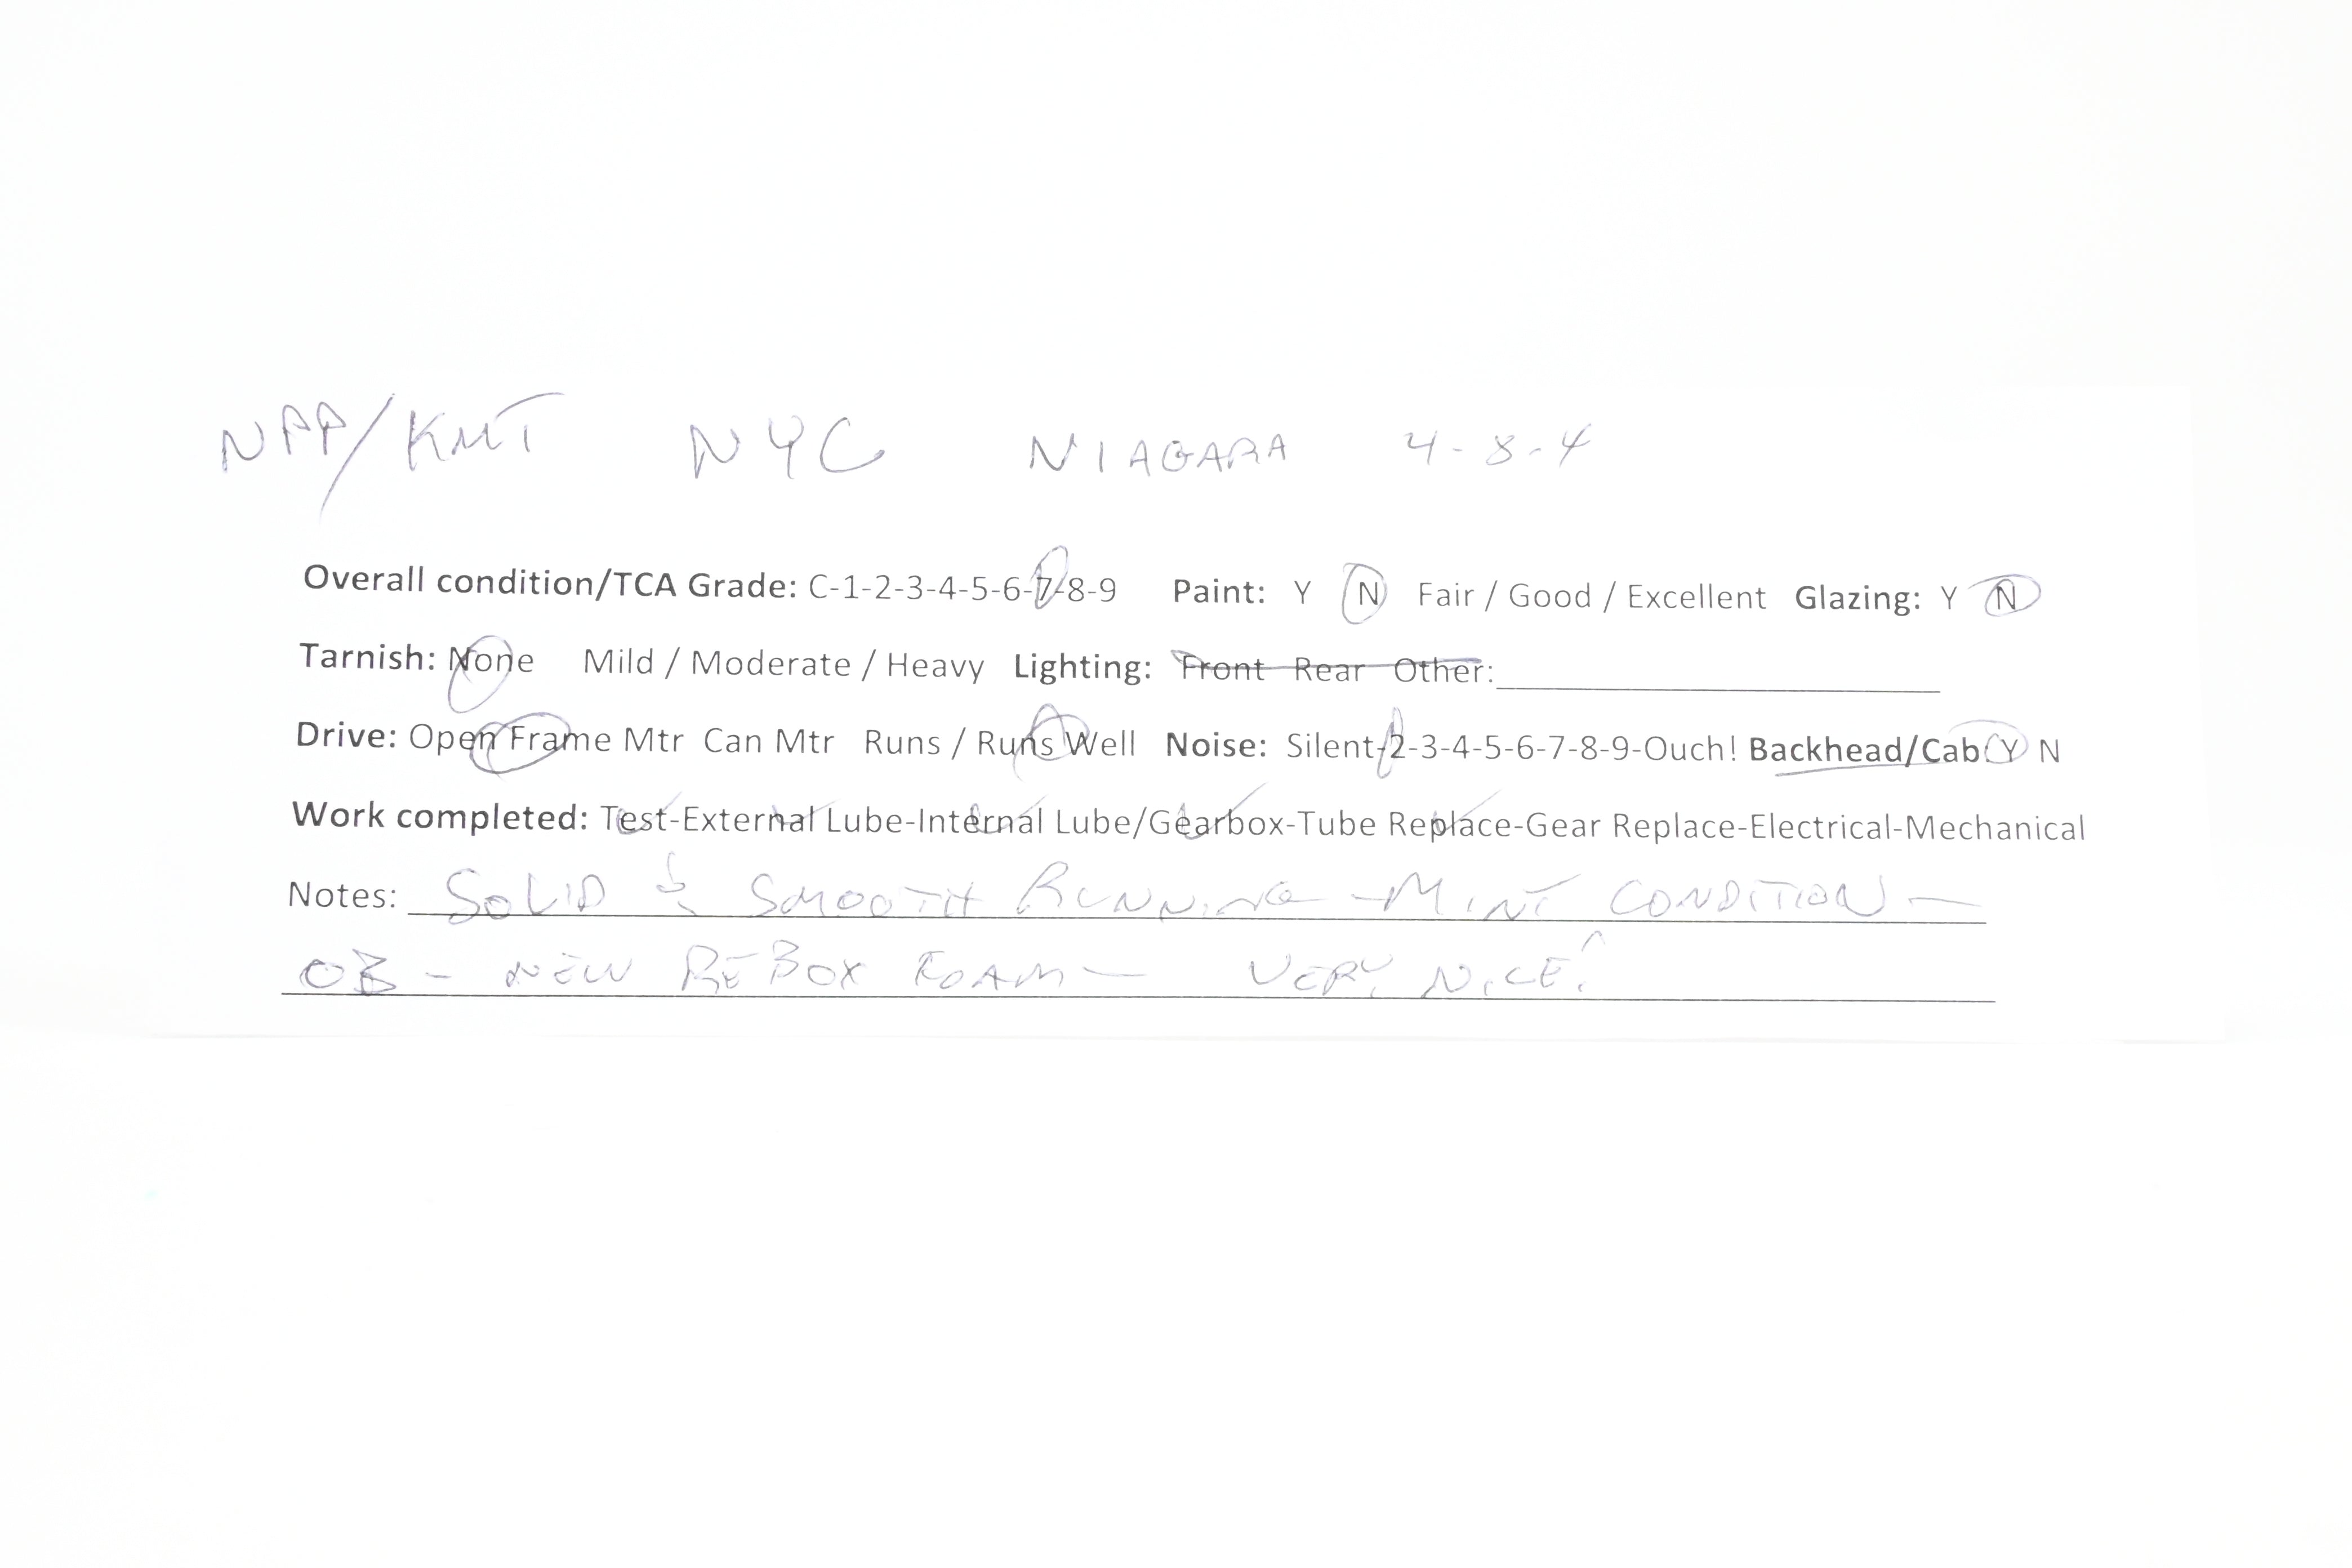 NPP/KMT NYC NIAGARA 4-8-4
Overall condition/TCA Grade: C-1-2-3-4-5-6-7-8-9 Paint: Y N Fair / Good / Excellent Glazing: Y N
Tarnish: None Mild / Moderate / Heavy Lighting: Front Rear Other:
Drive: Open Frame Mtr Can Mtr Runs / Runs Well Noise: Silent-2-3-4-5-6-7-8-9-Ouch! Backhead/Cab: Y N
Work completed: Test-External Lube-Internal Lube/Gearbox-Tube Replace-Gear Replace-Electrical-Mechanical
Notes: SOLID & SMOOTH RUNNING - MINT CONDITION -
OB - NEW REBOX FOAM - VERY NICE!